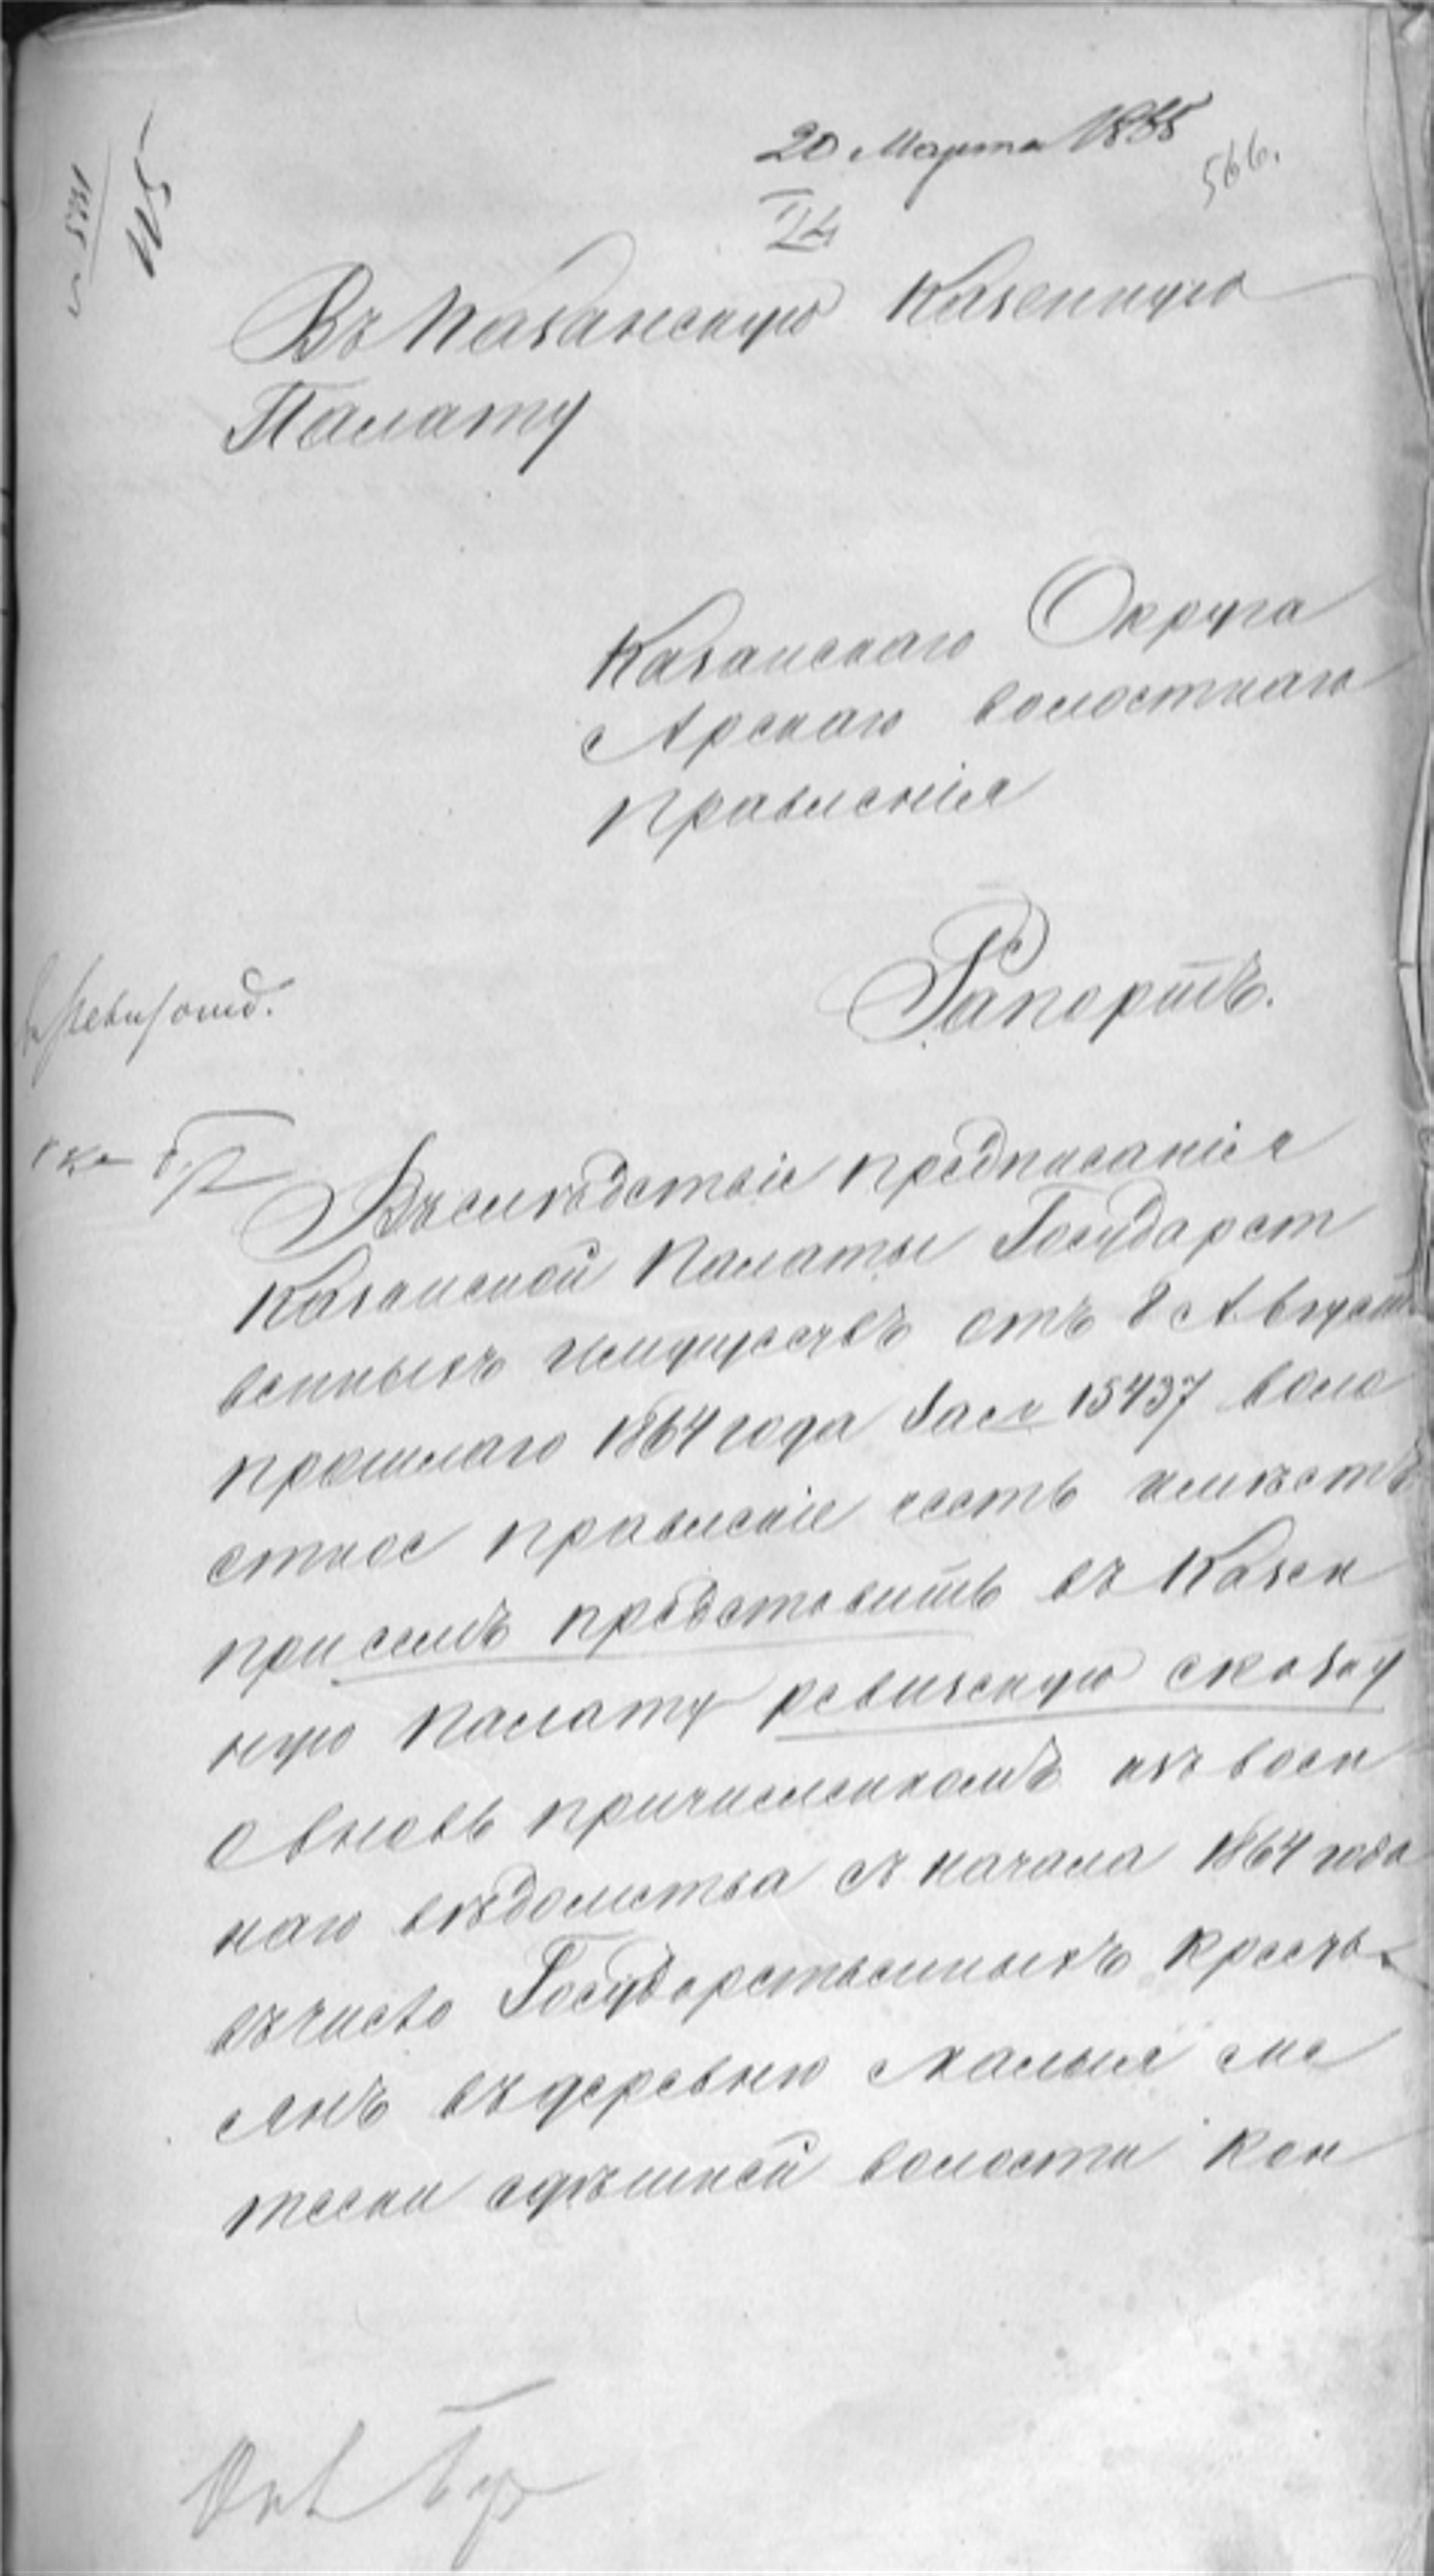 20 Марта 1865
566.
511
Въ Казанскую Казенную
Палату
Казанскаго Округа
Арскаго волостнаго
правленія
Рапортъ.
Въ слѣдствіе предписанія
Казанской Палаты Государст
венныхъ имуществъ отъ 8 Август
прошлаго 1864 года за № 15437 воло
стное правленіе честь имѣетъ
при семъ представить въ Казен
ную палату ревизскую сказку
о вновь причисленномъ изъ воен
наго вѣдомства съ начала 1864 года
въ число Государственныхъ кресть
янъ въ деревню Малыя Ме
тески здѣшней волости Кон